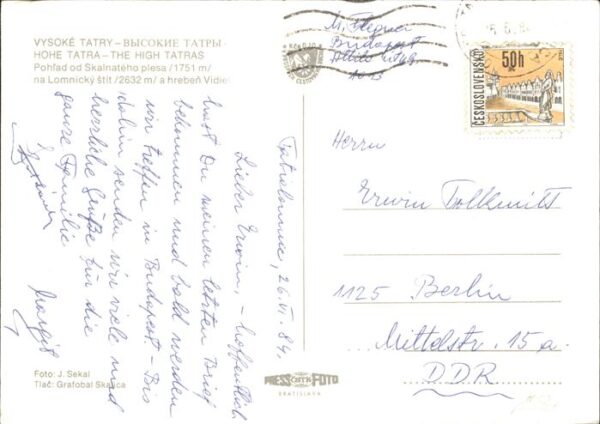 VYSOKÉ TATRY – ВЫСОКИЕ ТАТРЫ
HOHE TATRA – THE HIGH TATRAS
Pohľad od Skalnatého plesa /1751 m/
na Lomnický štít /2632 m/ a hrebeň Vidie
M.
Budapest
50h
ČESKOSLOVENSKO
Tatralomnic, 26.VI.84.
Lieber Erwin, – hoffentlich
hast Du meinen letzten Brief
bekommen und bald werden
wir treffen in Budapest – Bis
dahin senden wir viele und
herzliche Grüße für die
ganze Familie
Margit
Herrn
Erwin Tolkmitt
1125 Berlin
Mittelstr. 15 a.
DDR
Foto: J. Sekal
Tlač: Grafobal Skalica
PRESSFOTO
BRATISLAVA